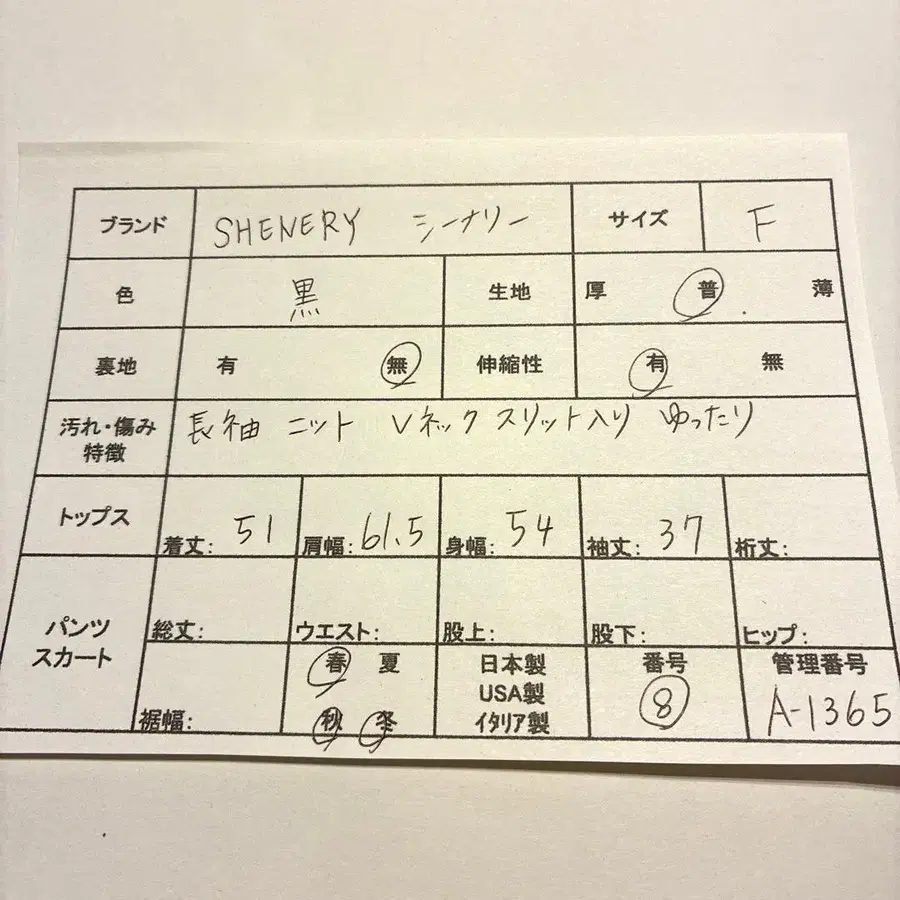 ブランド SHENERY シーナリー サイズ F
色 黒 生地 厚 普 薄
裏地 有 無 伸縮性 有 無
汚れ・傷み
特徴
長袖 ニット Vネック スリット入り ゆったり
トップス 着丈: 51 肩幅: 61.5 身幅: 54 袖丈: 37 裄丈:
パンツ
スカート
総丈: ウエスト: 股上: 股下: ヒップ:
裾幅:
春 夏
秋 冬
日本製
USA製
イタリア製
番号
8
管理番号
A-1365